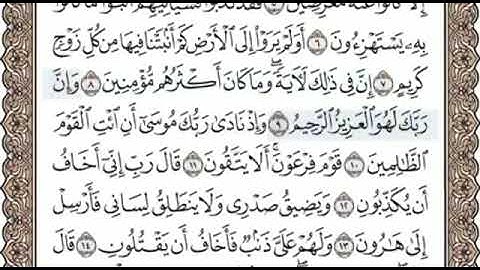 بِهِۦ يَسْتَهْزِءُونَ ٦ أَوَلَمْ يَرَوْا۟ إِلَى ٱلْأَرْضِ كَمْ أَنۢبَتْنَا فِيهَا مِن كُلِّ زَوْجٍ
كَرِيمٍ ٧ إِنَّ فِى ذَٰلِكَ لَـَٔايَةً ۖ وَمَا كَانَ أَكْثَرُهُم مُّؤْمِنِينَ ٨ وَإِنَّ
رَبَّكَ لَهُوَ ٱلْعَزِيزُ ٱلرَّحِيمُ ٩ وَإِذْ نَادَىٰ رَبُّكَ مُوسَىٰٓ أَنِ ٱئْتِ ٱلْقَوْمَ
ٱلظَّٰلِمِينَ ١٠ قَوْمَ فِرْعَوْنَ ۚ أَلَا يَتَّقُونَ ١١ قَالَ رَبِّ إِنِّىٓ أَخَافُ
أَن يُكَذِّبُونِ ١٢ وَيَضِيقُ صَدْرِى وَلَا يَنطَلِقُ لِسَانِى فَأَرْسِلْ
إِلَىٰ هَٰرُونَ ١٣ وَلَهُمْ عَلَىَّ ذَنۢبٌ فَأَخَافُ أَن يَقْتُلُونِ ١٤ قَالَ